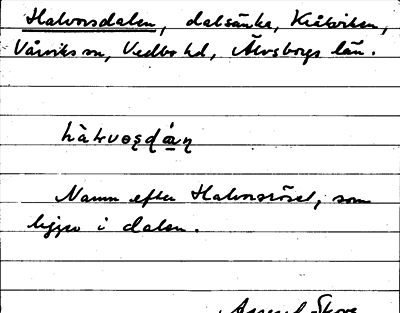 Halvorsdalen, dalsänka, Kråkviken,
Vårviks sn, Vedbo hd, Älvsborgs län.
Namn efter Halvorsröset, som
ligger i dalen.